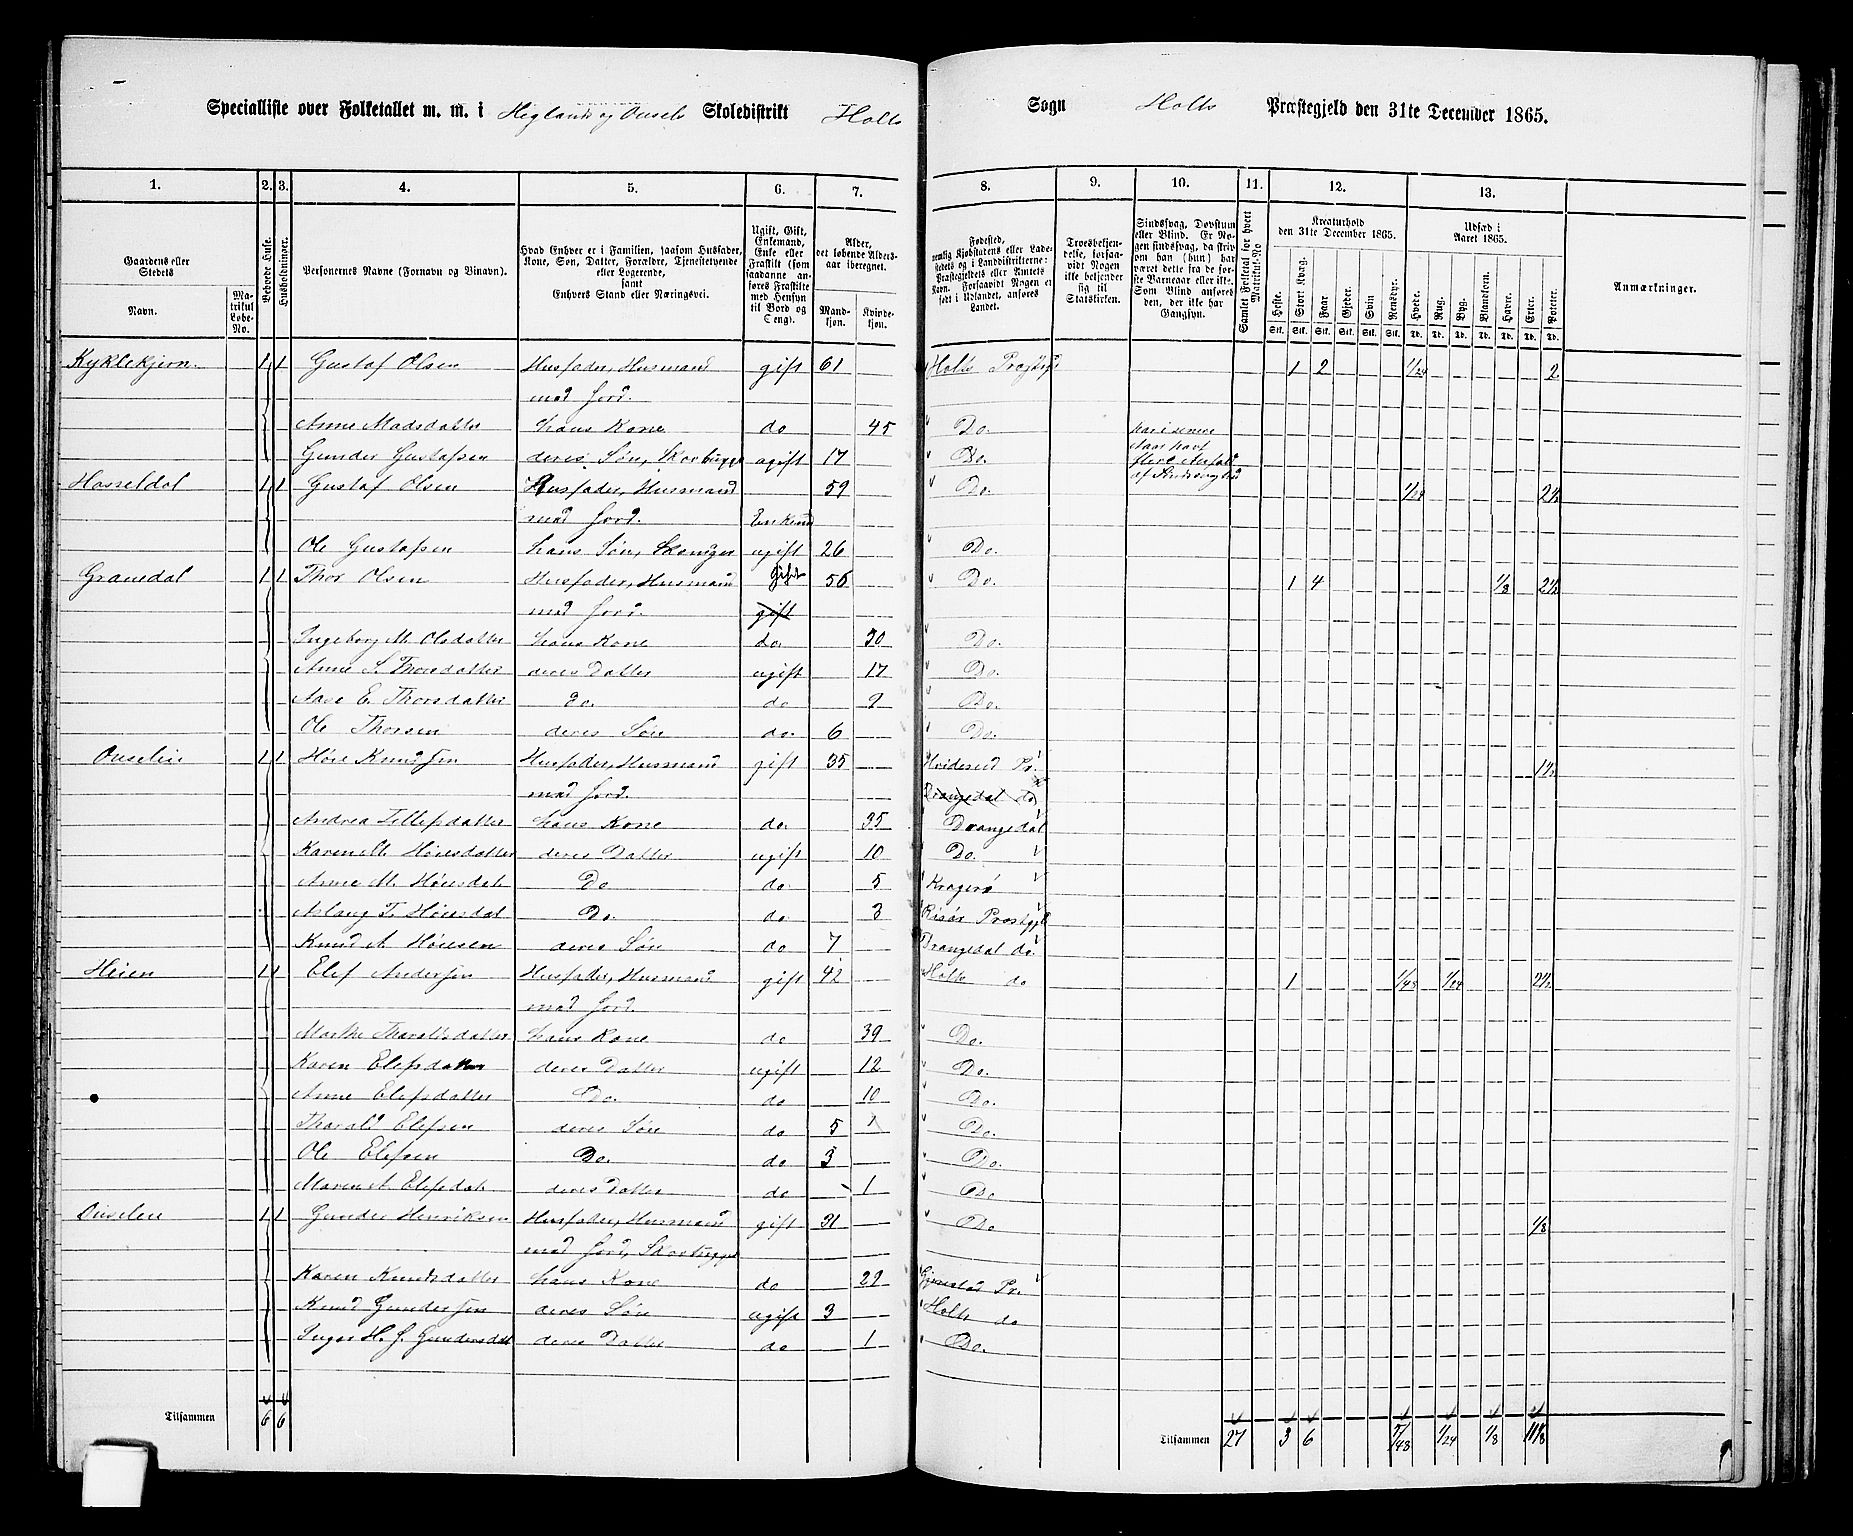 Specialliste over Folketallet m. m. i Hegland og Ousels Skoledistrikt Holts Sogn Holts Præstegjeld den 31te December 1865.
1. 2. 3. 4. 5. 6. 7. 8. 9. 10. 11. 12. 13.
Gaardens eller Stedets
Navn.
Matrikul Løbe-No.
Beboede Huse.
Husholdninger.
Personernes Navne (Fornavn og Tilnavn).
Hvad Enhver er i Familien, saasom Husfader, Kone, Søn, Datter, Forældre, Tjenestetyende eller Logerende,
samt
Enhvers Stand eller Næringsvei.
Ugift, Gift, Enkemand, Enke eller Fraskilt (som saadanne anføres Fraskilte med Hensyn til Bord og Seng).
Alder, det løbende Aldersaar iberegnet.
Mandkjøn.
Kvindekjøn.
Fødested,
Troesbekjendelse, forsaavidt Nogen ikke bekjender sig til Statskirken.
Sindssvag, Døvstum eller Blind.
Samlet Folketal for hvert Matrikul-No
Kreaturhold den 31te December 1865.
Heste. Stort Kvæg. Faar. Gjeder. Sviin. Rensdyr.
Udsæd i Aaret 1865.
Hvede. Rug. Byg. Blandkorn. Havre. Erter. Poteter.
Anmærkninger.
Kyklekjern 1 1 Gustaf Olsen Husfader, Husmand gift 61 Holts Præstgj 1 2 1/24 2
med Jord.
Anne Madsdatter hans Kone do 45 Do. har i senere
Gunder Gustafsen deres Søn, Skovhugge ugift 17 Do. Aar havt
Hasseldal 1 1 Gustaf Olsen Husfader, Husmand 59 Do. 2½
med Jord. Enkemd
Ole Gustafsen hans Søn, ugift 26 Do.
Granedal 1 1 Thor Olsen Husfader, Husmand Gift 56 Do. 1 4 1/8 2½
med Jord. gift
Ingeborg M. Olsdatter hans Kone do. 50 Do.
Anne S. Thorsdatter deres Datter ugift 17 Do.
Aase E. Thorsdatter Do. do 9 Do.
Ole Thorsen deres Søn do. 6 Do.
Ouselien 1 1 Høie Knudsen Husfader, Husmand gift 35 Hvidesed Pr. 1½
med Jord. Drangedal do
Andrea Tellefsdatter hans Kone do. 35 Drangedal
Karen M. Høiesdatter deres Datter ugift 10 Do.
Anne M. Høiesdat Do do. 5 Kragerø
Aslaug T. Høiesdat Do. do 3 Risør Præstgjl
Knud A. Høiesen deres Søn do 7 Drangedal do.
Heien 1 1 Elef Andersen Husfader, Husmand gift 42 Holts do 1 1/48 1/24 2½
med Jord.
Marthe Tharaldsdatter hans Kone do 39 Do.
Karen Elefsdatter deres Datter ugift 12 Do.
Anne Elefsdatter Do. do 10 Do.
Tharald Elefsen deres Søn do 5 Do.
Ole Elefsen Do. do 3 Do.
Maren A. Elefsdat deres Datter do 1 Do
Ouselien 1 1 Gunder Henriksen Husfader, Husmand gift 31 Do 1/8
med Jord, Skovhugger
Karen Knudsdatter hans Kone do 29 Gjerestad Pr.
Knud Gundersen deres Søn ugift 3 Holts do
Inger H. G. Gundersdat deres Datter do 1 Do.
Tilsammen 6 6 Tilsammen 27 3 6 5/48 1/24 1/8 11 1/8